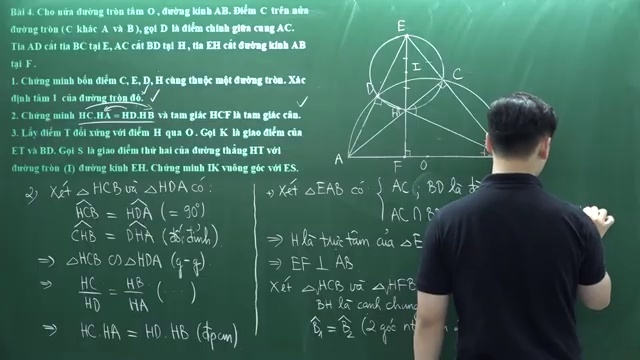 Bài 4. Cho nửa đường tròn tâm O, đường kính AB. Điểm C trên nửa
đường tròn (C khác A và B), gọi D là điểm chính giữa cung AC.
Tia AD cắt tia BC tại E, AC cắt BD tại H, tia EH cắt đường kính AB
tại F.
1. Chứng minh bốn điểm C, E, D, H cùng thuộc một đường tròn. Xác
định tâm I của đường tròn đó.
2. Chứng minh HC.HA = HD.HB và tam giác HCF là tam giác cân.
3. Lấy điểm T đối xứng với điểm H qua O. Gọi K là giao điểm của
ET và BD. Gọi S là giao điểm thứ hai của đường thẳng HT với
đường tròn (I) đường kính EH. Chứng minh IK vuông góc với ES.
E
I
C
D
H
A
F
O
2) Xét △HCB và △HDA có:
HCB = HDA (= 90°)
CHB = DHA (đối đỉnh)
⇒ △HCB ∽ △HDA (g-g)
⇒ HC/HD = HB/HA (...)
⇒ HC.HA = HD.HB (đpcm)
+) Xét △EAB có { AC; BD là
AC ∩
⇒ H là trực tâm của △E
⇒ EF ⊥ AB
Xét △HCB và △HFB
BH là cạnh chung
B̂1 = B̂2 (2 góc